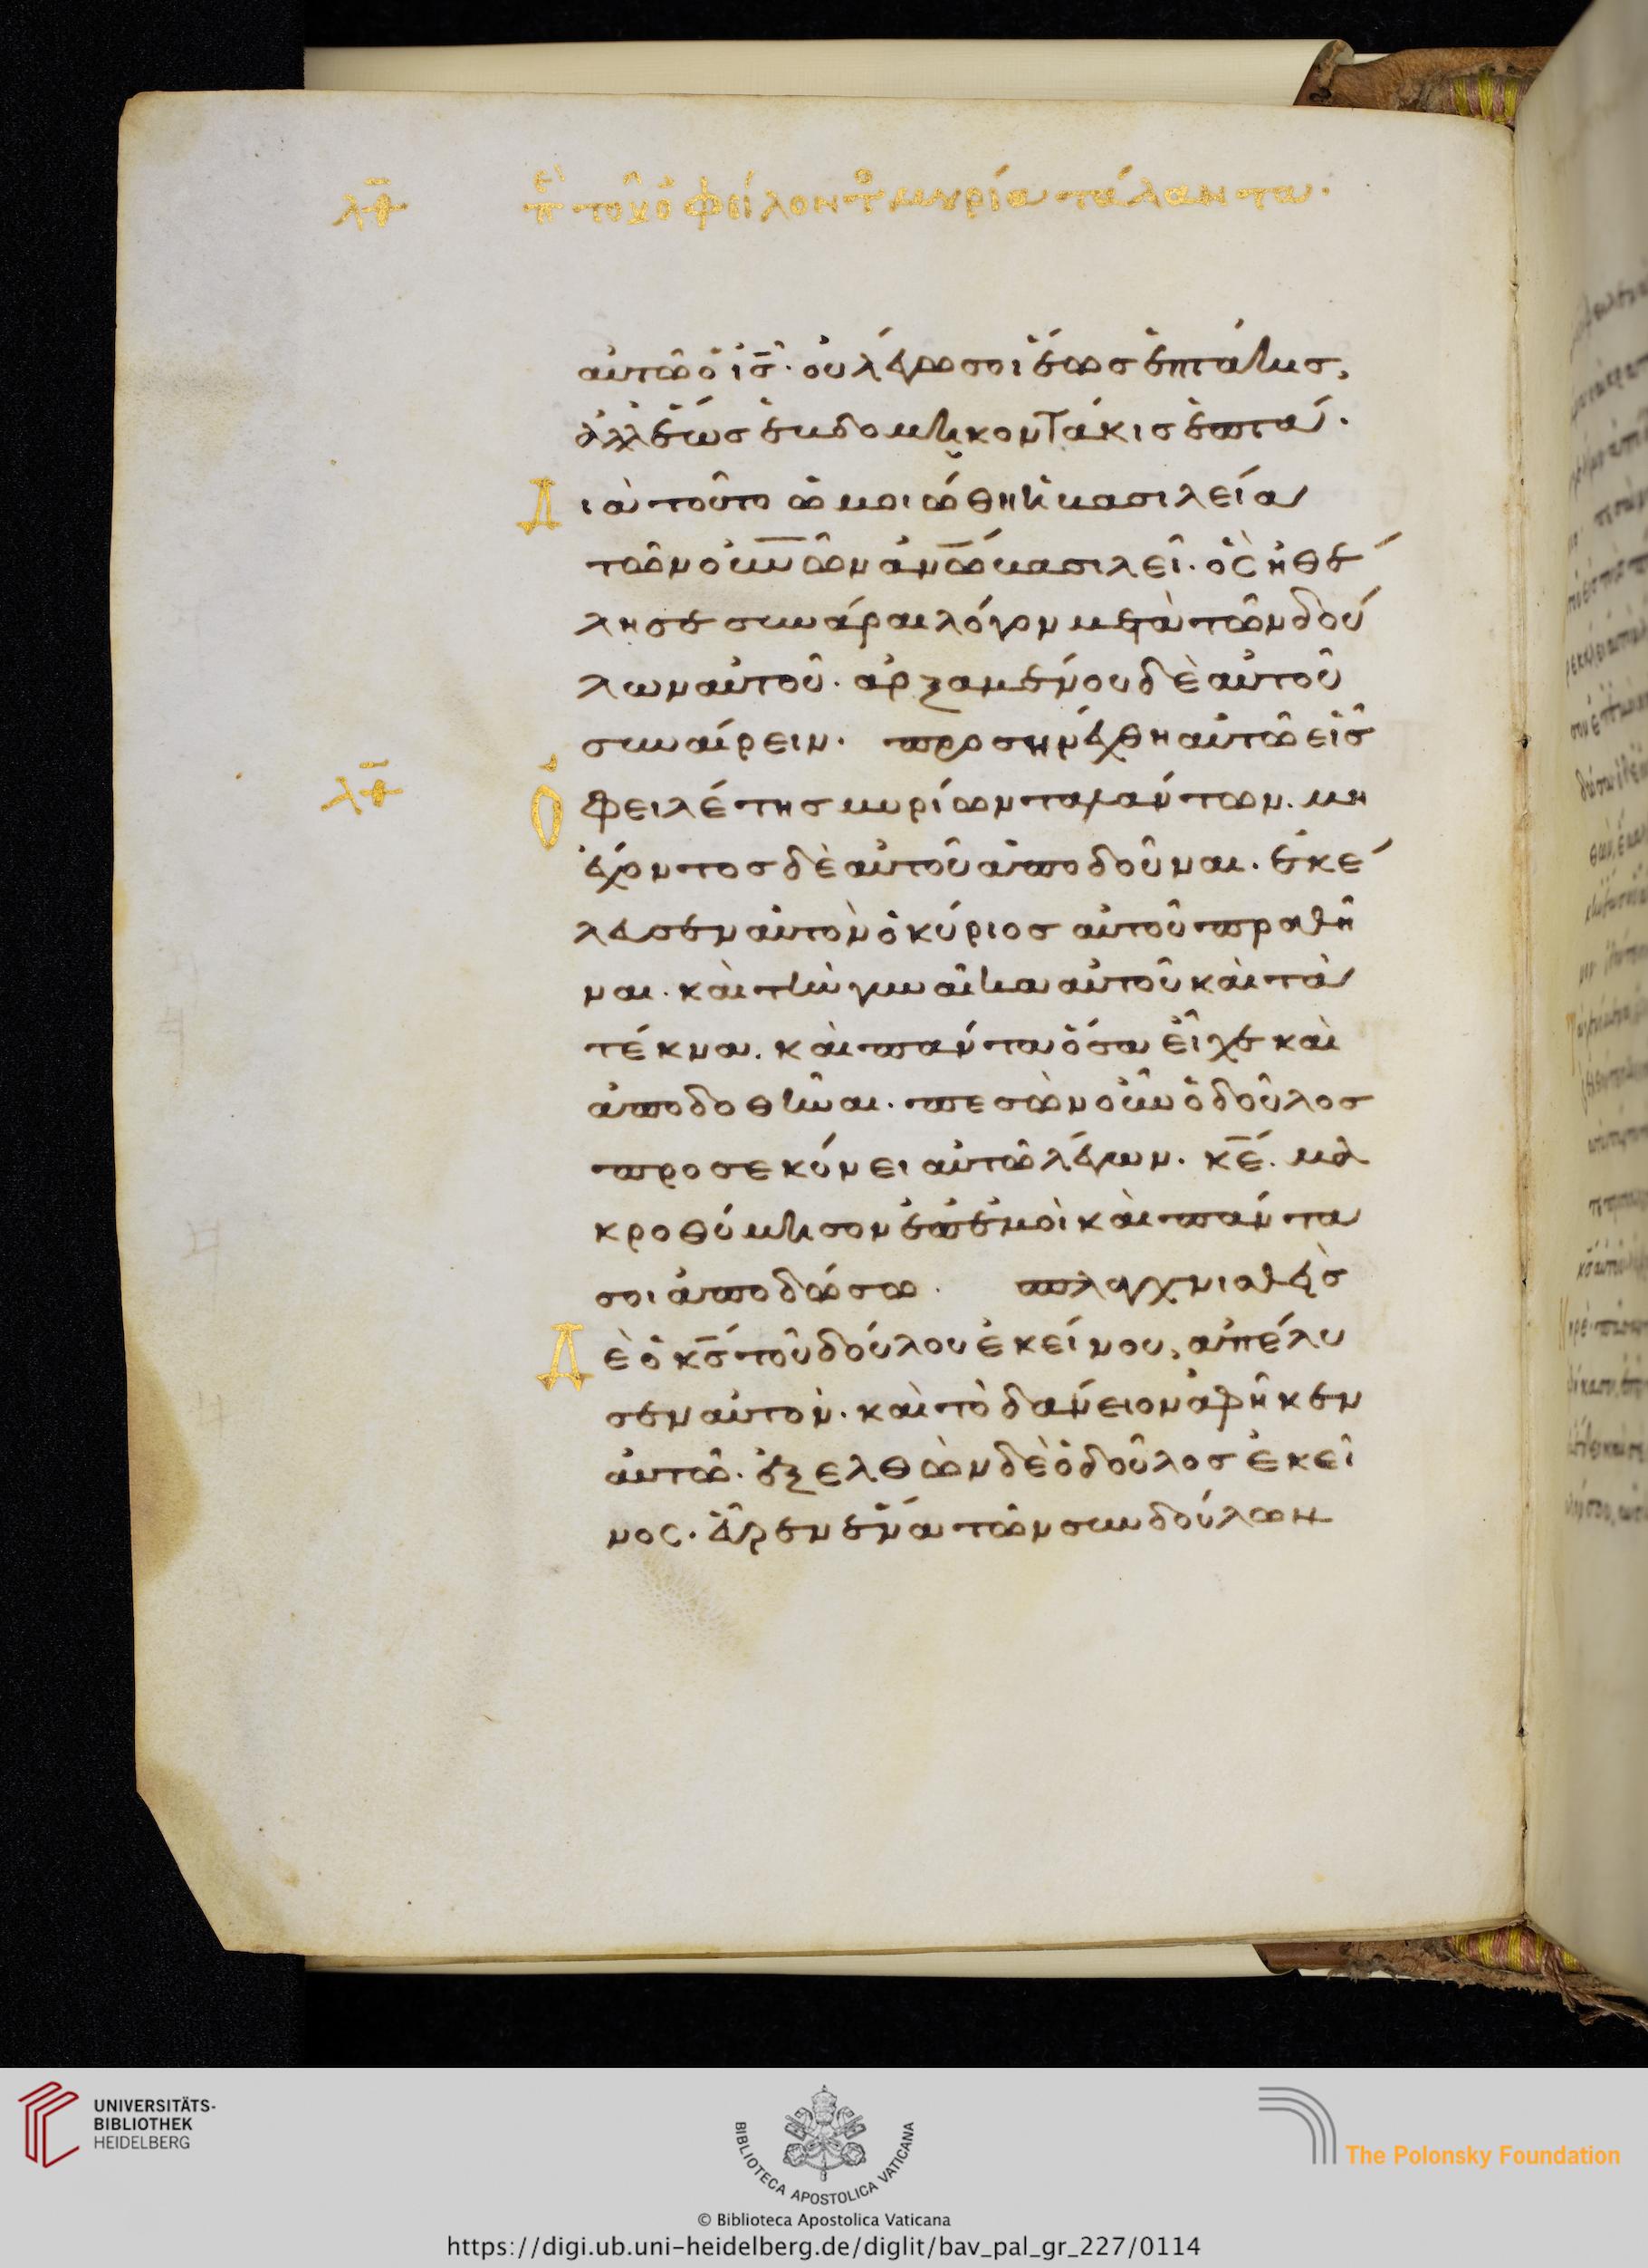 λθ̄ πε̣ρ̀ τοῦ ὀφείλοντ̊ μυρία τάλαντα·
αὐτῶ ὁ ι̅ς̅· οὐ λέγω σοι ἕως ἑπτάκις,
ἀλλ' ἕως ἑβδομηκοντάκις ἑπτά·
Διὰ τοῦτο ὡμοιώθη ἡ βασιλεία
τῶν ο̅υ̅ν̅ω̅ν̅ α̅ν̅ω̅ βασιλεῖ· ὃς ἠθέ
λησε συνάραι λόγον μετὰ τῶν δού
λων αὐτοῦ· ἀρξαμένου δὲ αὐτοῦ
συναίρειν· προσηνέχθη αὐτῶ εἷς
λθ̄ Ὀφειλέτης μυρίων ταλάντων. μὴ
ἔχοντος δὲ αὐτοῦ ἀποδοῦναι· ἐκέ
λευσεν αὐτὸν ὁ κύριος αὐτοῦ πραθῆ
ναι· καὶ τὴν γυναῖκα αὐτοῦ καὶ τὰ
τέκνα. καὶ πάντα ὅσα εἶχε καὶ
ἀποδοθῆναι· πεσὼν οὖν ὁ δοῦλος
προσεκύνει αὐτῶ λέγων· κ̅ε̅. μα
κροθύμησον ἐπ' ἐμοὶ καὶ πάντα
σοι ἀποδώσω· σπλαγχνισθεὶς
Δὲ ὁ κ̅ς̅ τοῦ δούλου ἐκείνου, ἀπέλυ
σεν αὐτόν· καὶ τὸ δάνειον ἀφῆκεν
αὐτῶ· ἐξελθὼν δὲ ὁ δοῦλος ἐκεῖ
νος· εὗρεν ἕνα τῶν συνδούλων
UNIVERSITÄTS-
BIBLIOTHEK
HEIDELBERG
BIBLIOTECA APOSTOLICA VATICANA
The Polonsky Foundation
© Biblioteca Apostolica Vaticana
https://digi.ub.uni-heidelberg.de/diglit/bav_pal_gr_227/0114